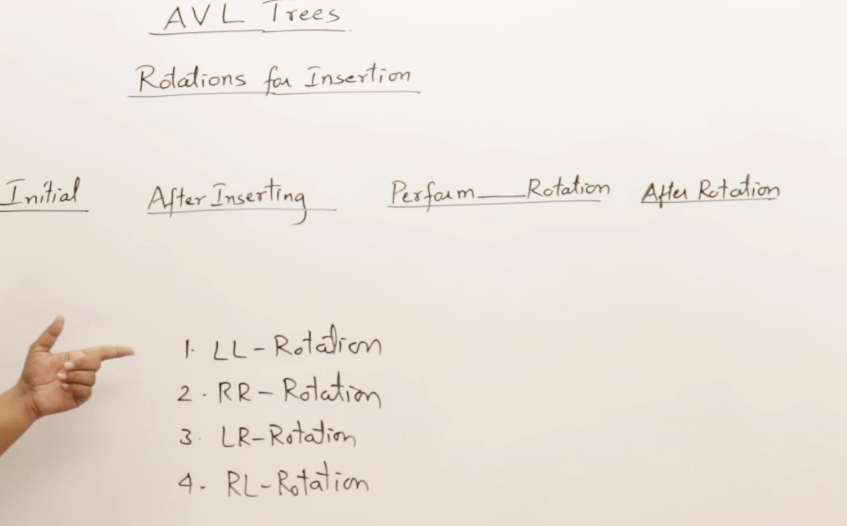 AVL Trees
Rotations for Insertion
Initial After Inserting Perform ___ Rotation After Rotation
1. LL-Rotation
2. RR-Rotation
3. LR-Rotation
4. RL-Rotation